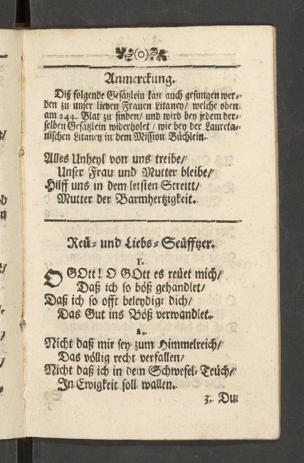 Anmerckung.
Diß folgende Gesätzlein kan auch gesungen wer-
den zu unser lieben Frauen Litaney/ welche oben
am 244. Blat zu finden/ und wird bey jedem der-
selben Gesätzlein widerholet/ wie bey der Laureta-
nischen Litaney in dem Mission Büchlein.
Alles Unheyl von uns treibe/
Unser Frau und Mutter bleibe/
Hilff uns in dem letsten Streitt/
Mutter der Barmhertzigkeit.
Reü- und Liebs-Seüfftzer.
1.
O GOtt! O GOtt es reüet mich/
Daß ich so böß gehandlet/
Daß ich so offt beleydiget dich/
Das Gut ins Böß verwandlet.
2.
Nicht daß mir sey zum Himmelreich/
Das völlig recht verfallen/
Nicht daß ich in dem Schwefel-Teüch/
In Ewigkeit soll wallen.
3. Du